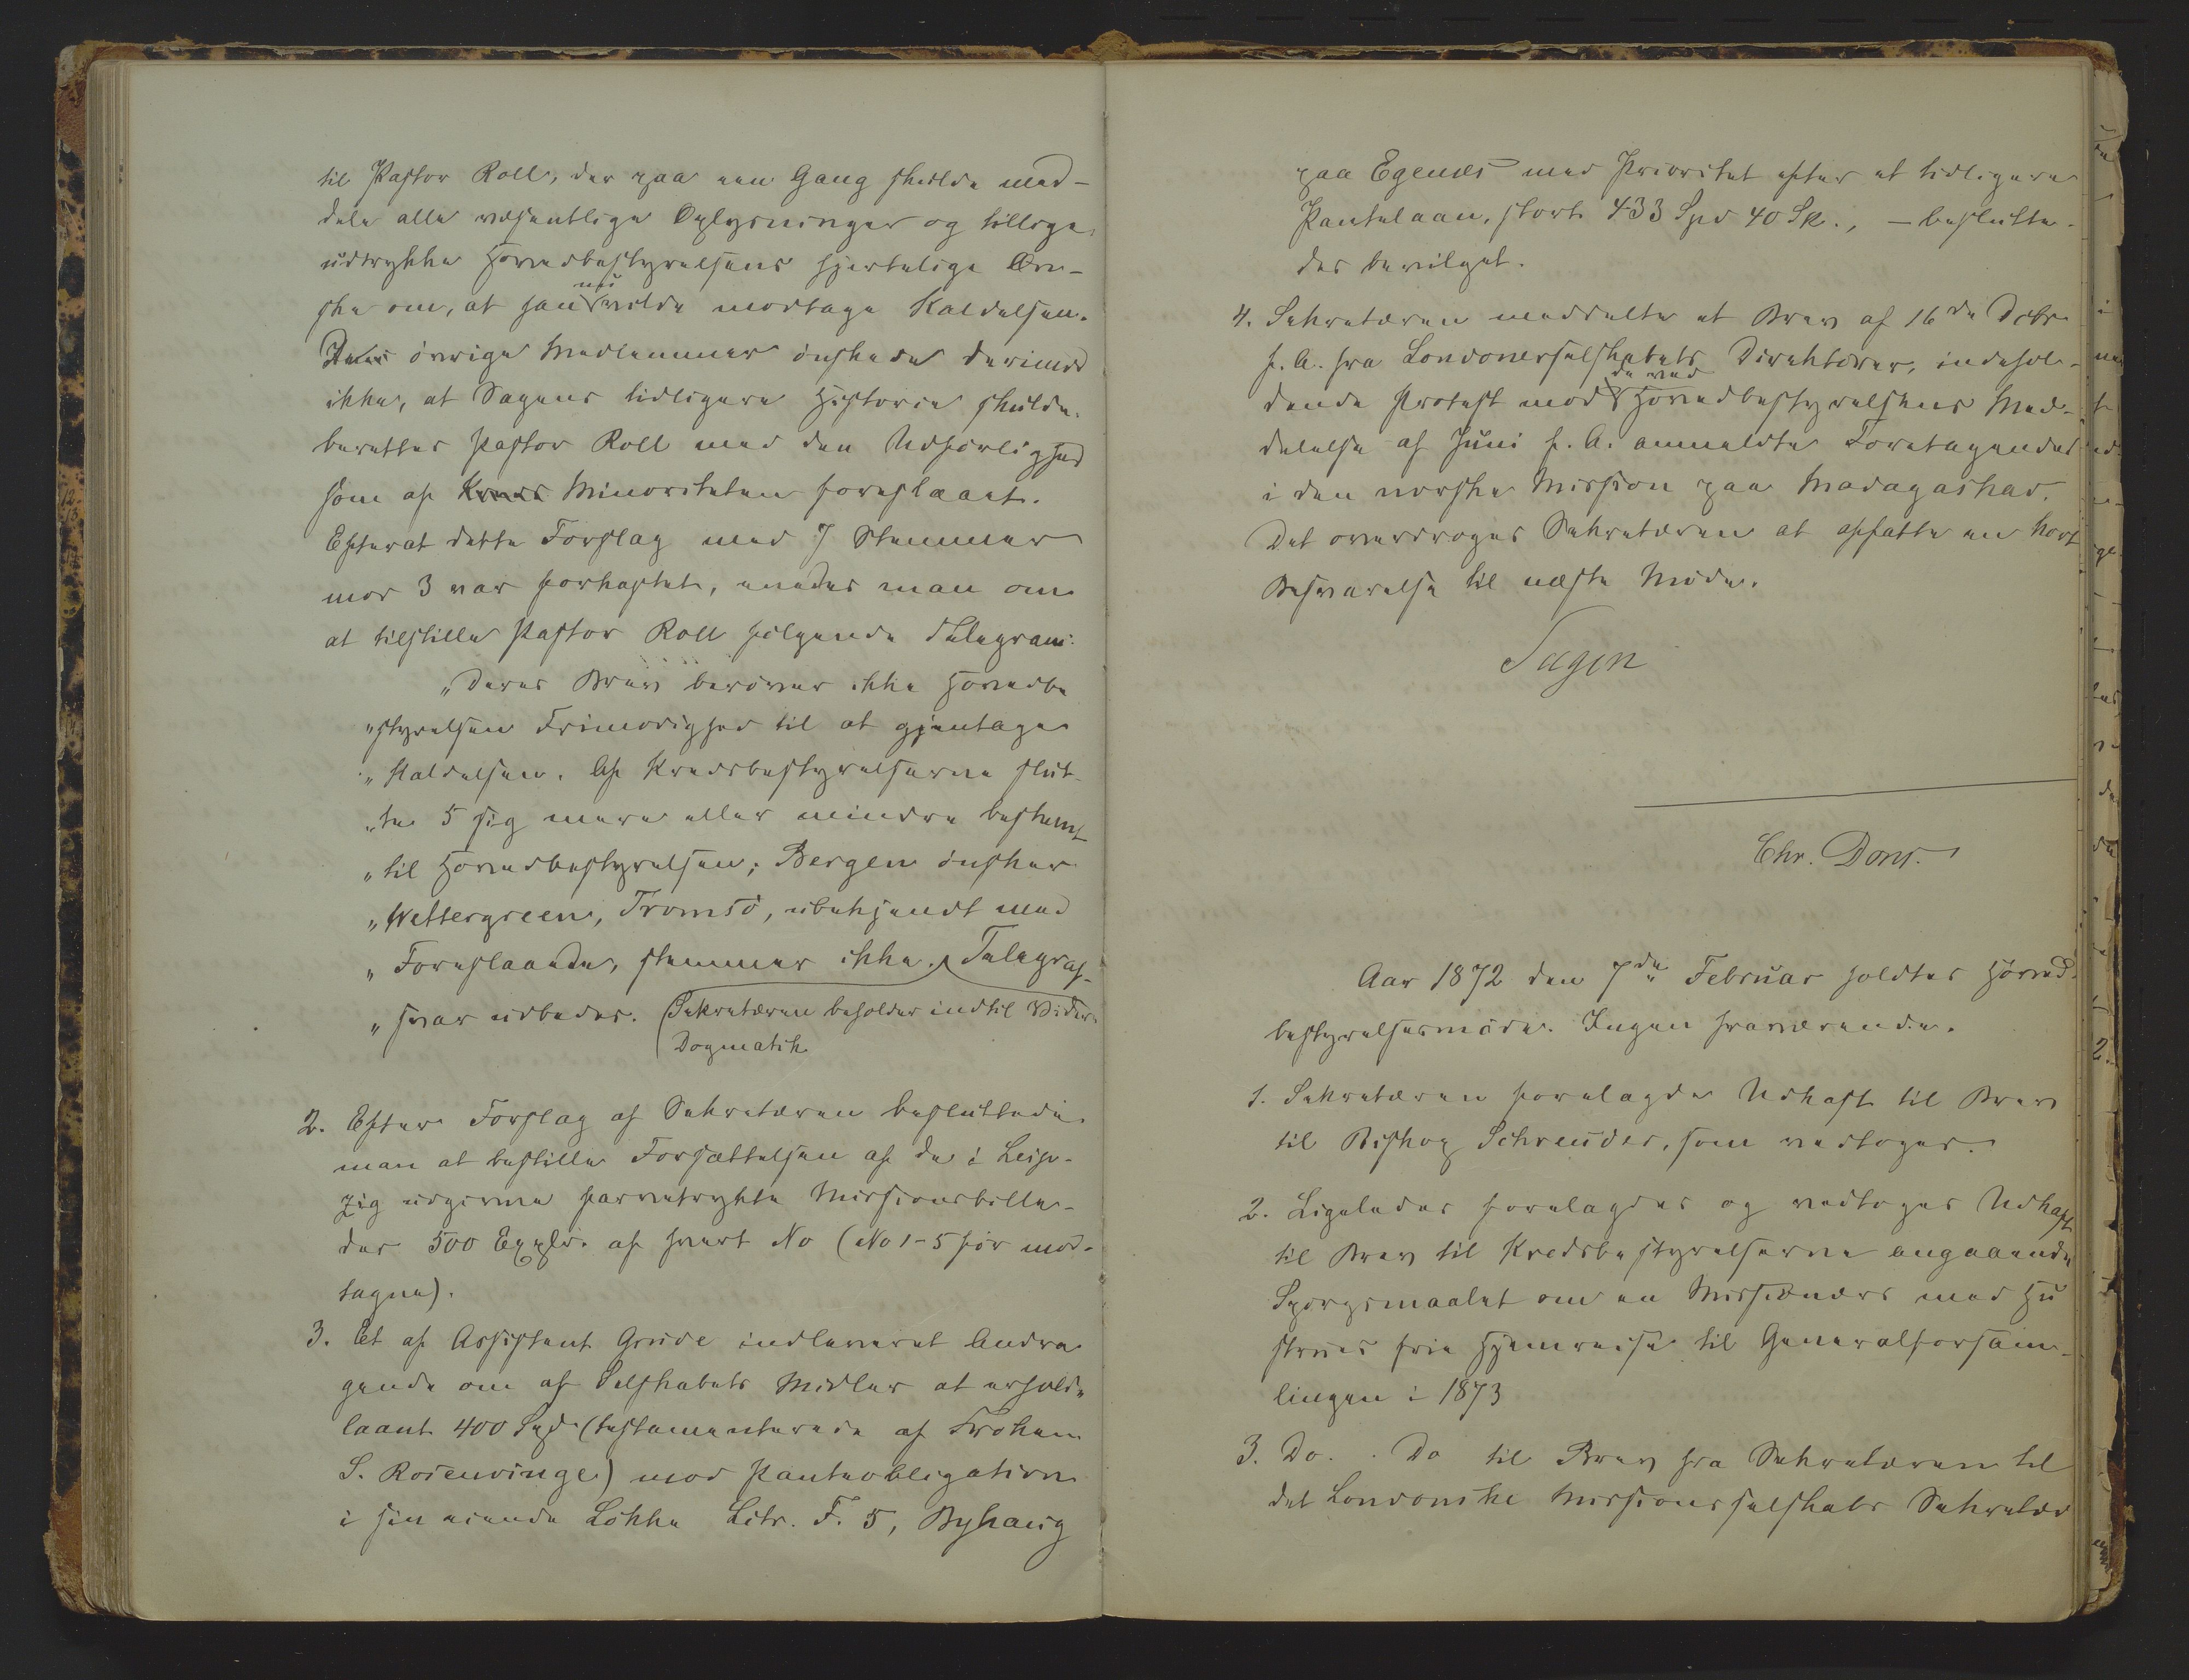 til Pastor Roll, der paa een Gang skulde med-
dele alle væsentlige Oplysninger og tillige
udtrykke Hovedbestyrelsens hjertelige Øn-
ske om, at han nu vilde modtage Kaldelsen.
øvrige Medlemmer ønskede derimod
ikke, at Sagens tidligere Historie skulde
berettes Pastor Roll med den Udførlighed
som af Minoriteten foreslaaet.
Efterat dette Forslag med 7 Stemmer
mod 3 var forkastet, enedes man om
at tilstille Pastor Roll følgende Telegram:
"Deres Brev berøver ikke Hovedbe
"styrelsen Frimodighed til at gjentage
"Kaldelsen. Af Kredsbestyrelserne slut-
"te 5 sig mere eller mindre bestemt
"til Hovedbestyrelsen; Bergen ønsker
"Wettergreen, Tromsø, ubekjendt med
"Foreslaaede, stemmer ikke. Telegraf-
"svar udbedes. (Sekretæren beholder indtil Videre
Dogmatik
2. Efter Forslag af Sekretæren besluttede
man at bestille Forsættelsen af de i Leip-
zig udgivne farvetrykte Missionsbille-
der 500 Expl. af hvert No (No 1-5 før mod-
tagne).
3. Et af Assistent Grude indleveret Andra
gende om af Selskabets Midler at erholde
laant 400 Spd (testamenterede af Frøken
S. Rosenvinge) mod Panteobligation
i sin eiende Løkke Litr. F. 5, Byhaug
paa Egenes med Prioritet efter et tidligere
Pantelaan, stort 433 Spd 40 Sk., – beslutte-
des bevilget.
4. Sekretæren meddelte et Brev af 16de Dcbr
f. A. fra Londonerselskabets Direktører, indehol-
dende Protest mod de ved Hovedbestyrelsens Med-
delelse af Juni f. A. anmeldte Foretagender
i den norske Mission paa Madagaskar.
Det overdroges Sekretæren at affatte en kort
Besvarelse til næste Møde.
Sagen
Chr. Dons.
Aar 1872 den 7de Februar holdtes Hoved-
bestyrelsesmøde. Ingen fraværende.
1. Sekretæren forelagde Udkast til Brev
til Biskop Schreuder, som vedtoges.
2. Ligeledes forelagdes og vedtoges Udkast
til Brev til Kredsbestyrelserne angaaende
Spørgsmaalet om en Missionærs med Hu
strues frie Hjemreise til Generalforsam-
lingen i 1873
3. Do. Do til Brev fra Sekretæren til
det Londonske Missionsselskabs Sekretær